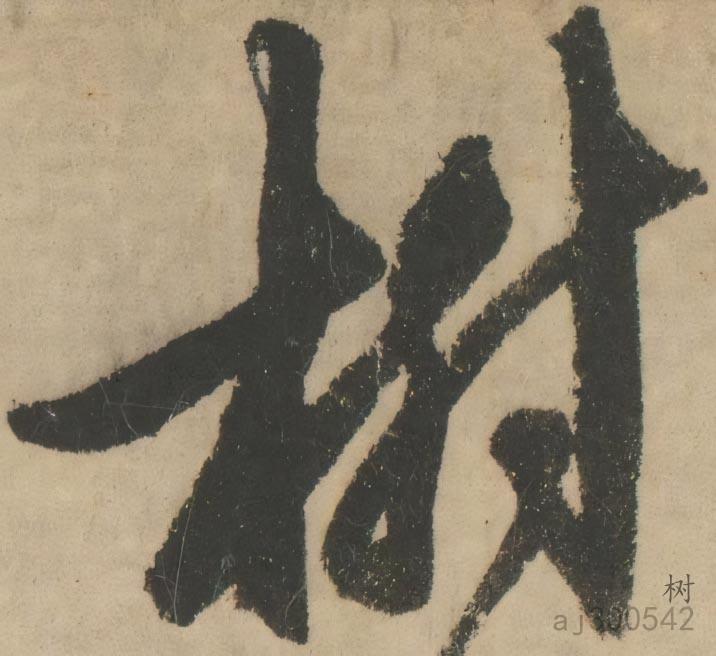 树
树
aj300542